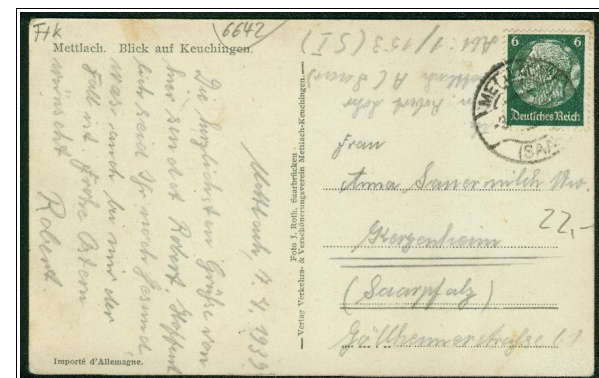 Ftk
6642
Mettlach. Blick auf Keuchingen.
Mettlach, 7. 4. 1939
Die herzlichsten Grüße von
hier sendet Robert. Hoffent
lich seid Ihr noch gesund
was auch bei mir der
Fall ist. Frohe Ostern
wünscht Robert.
Importé d'Allemagne.
Foto J. Roth, Saarbrücken
— Verlag Verkehrs- & Verschönerungsverein Mettlach-Keuchingen. —
Robert
Mettlach A (Saar)
Abt. 1/153 (S I)
6 6
Deutsches Reich
METTLACH
(SAAR)
Frau
Anna Sauermilch Ww.
22,-
Kerzenheim
(Saarpfalz)
Göllheimerstraße